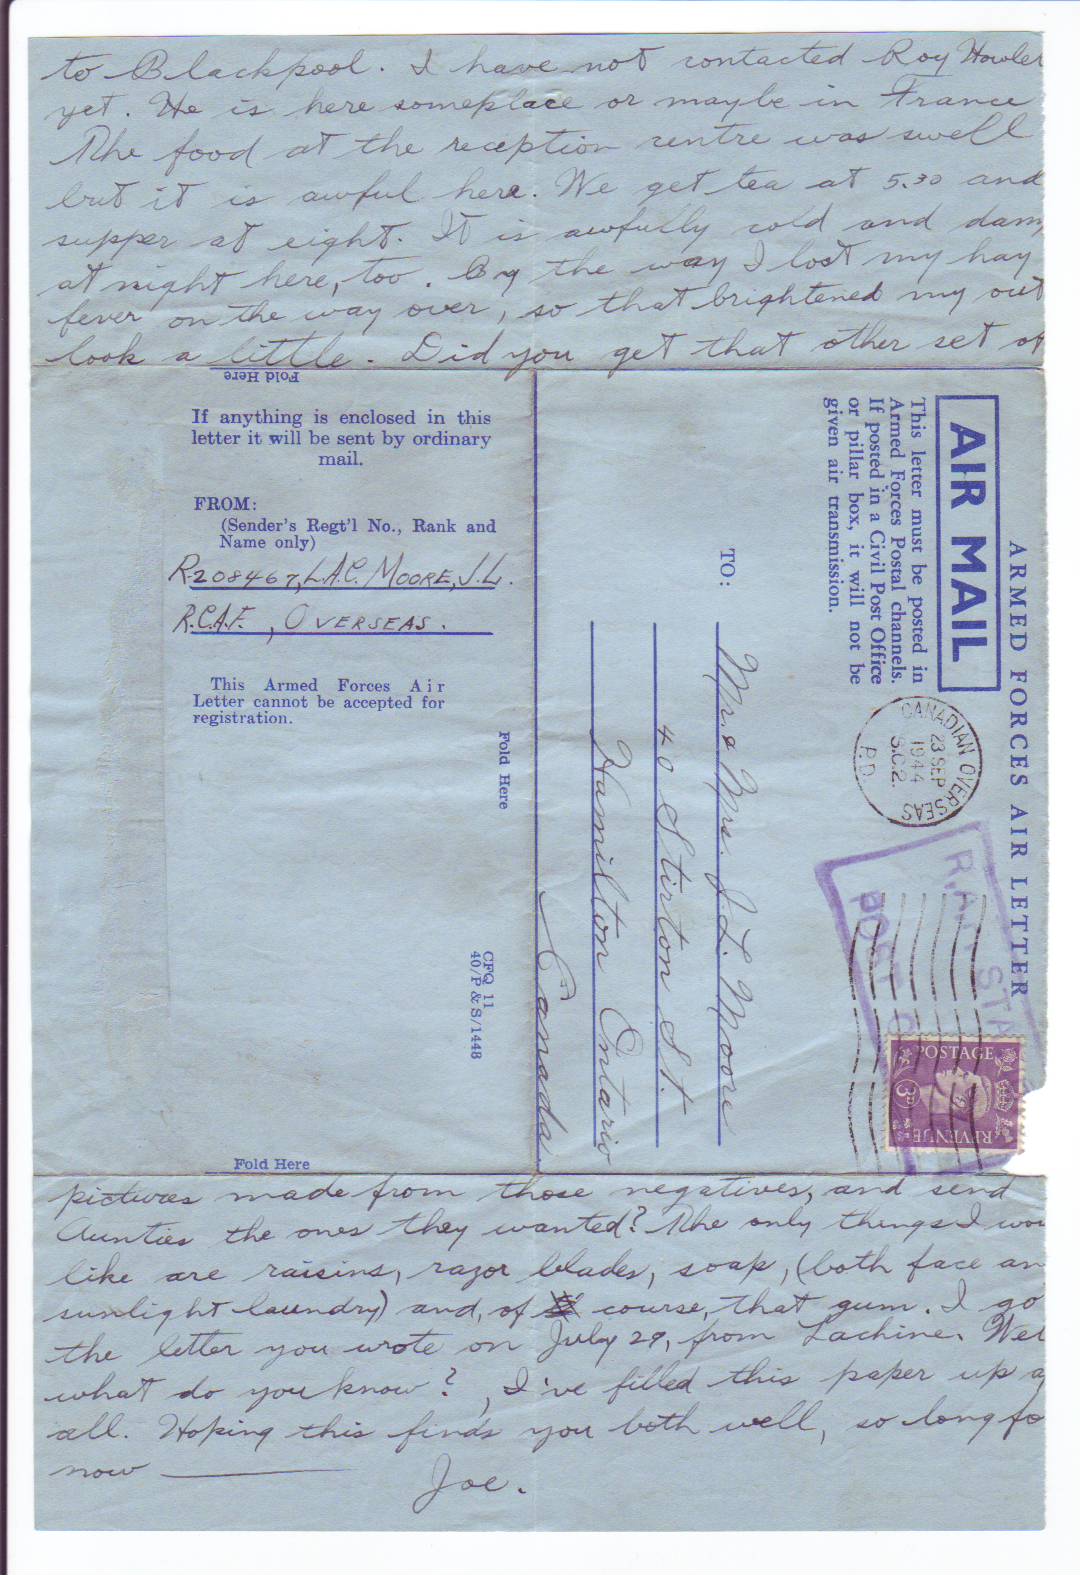 to Blackpool. I have not contacted Roy Howler
yet. He is here someplace or maybe in France
The food at the reception centre was swell
but it is awful here. We get tea at 5.30 and
supper at eight. It is awfully cold and dam
at night here, too. By the way I lost my hay
fever on the way over, so that brightened my out
look a little. Did you get that other set of
Fold Here
If anything is enclosed in this
letter it will be sent by ordinary
mail.
FROM:
(Sender's Regt'l No., Rank and
Name only)
R208467, L.A.C. MOORE, J.L.
R.C.A.F., OVERSEAS.
This Armed Forces Air
Letter cannot be accepted for
registration.
Fold Here
CFQ 11
40/P & S/1448
Fold Here
ARMED FORCES AIR LETTER
AIR MAIL
This letter must be posted in
Armed Forces Postal channels.
If posted in a Civil Post Office
or pillar box, it will not be
given air transmission.
TO:
Mr. & Mrs. J. L. Moore
40 Stirton St.
Hamilton Ontario
Canada.
CANADIAN OVERSEAS
23 SEP
1944
S.C.2.
P.D.
R.A.F. STA
POST O
POSTAGE
3D
REVENUE
pictures made from those negatives, and send
Aunties the ones they wanted? The only things I wou
like are raisins, razor blades, soap, (both face an
sunlight laundry) and, of course, that gum. I go
the letter you wrote on July 29, from Lachine. Wel
what do you know?, I've filled this paper up a
all. Hoping this finds you both well, so long fo
now
Joe.